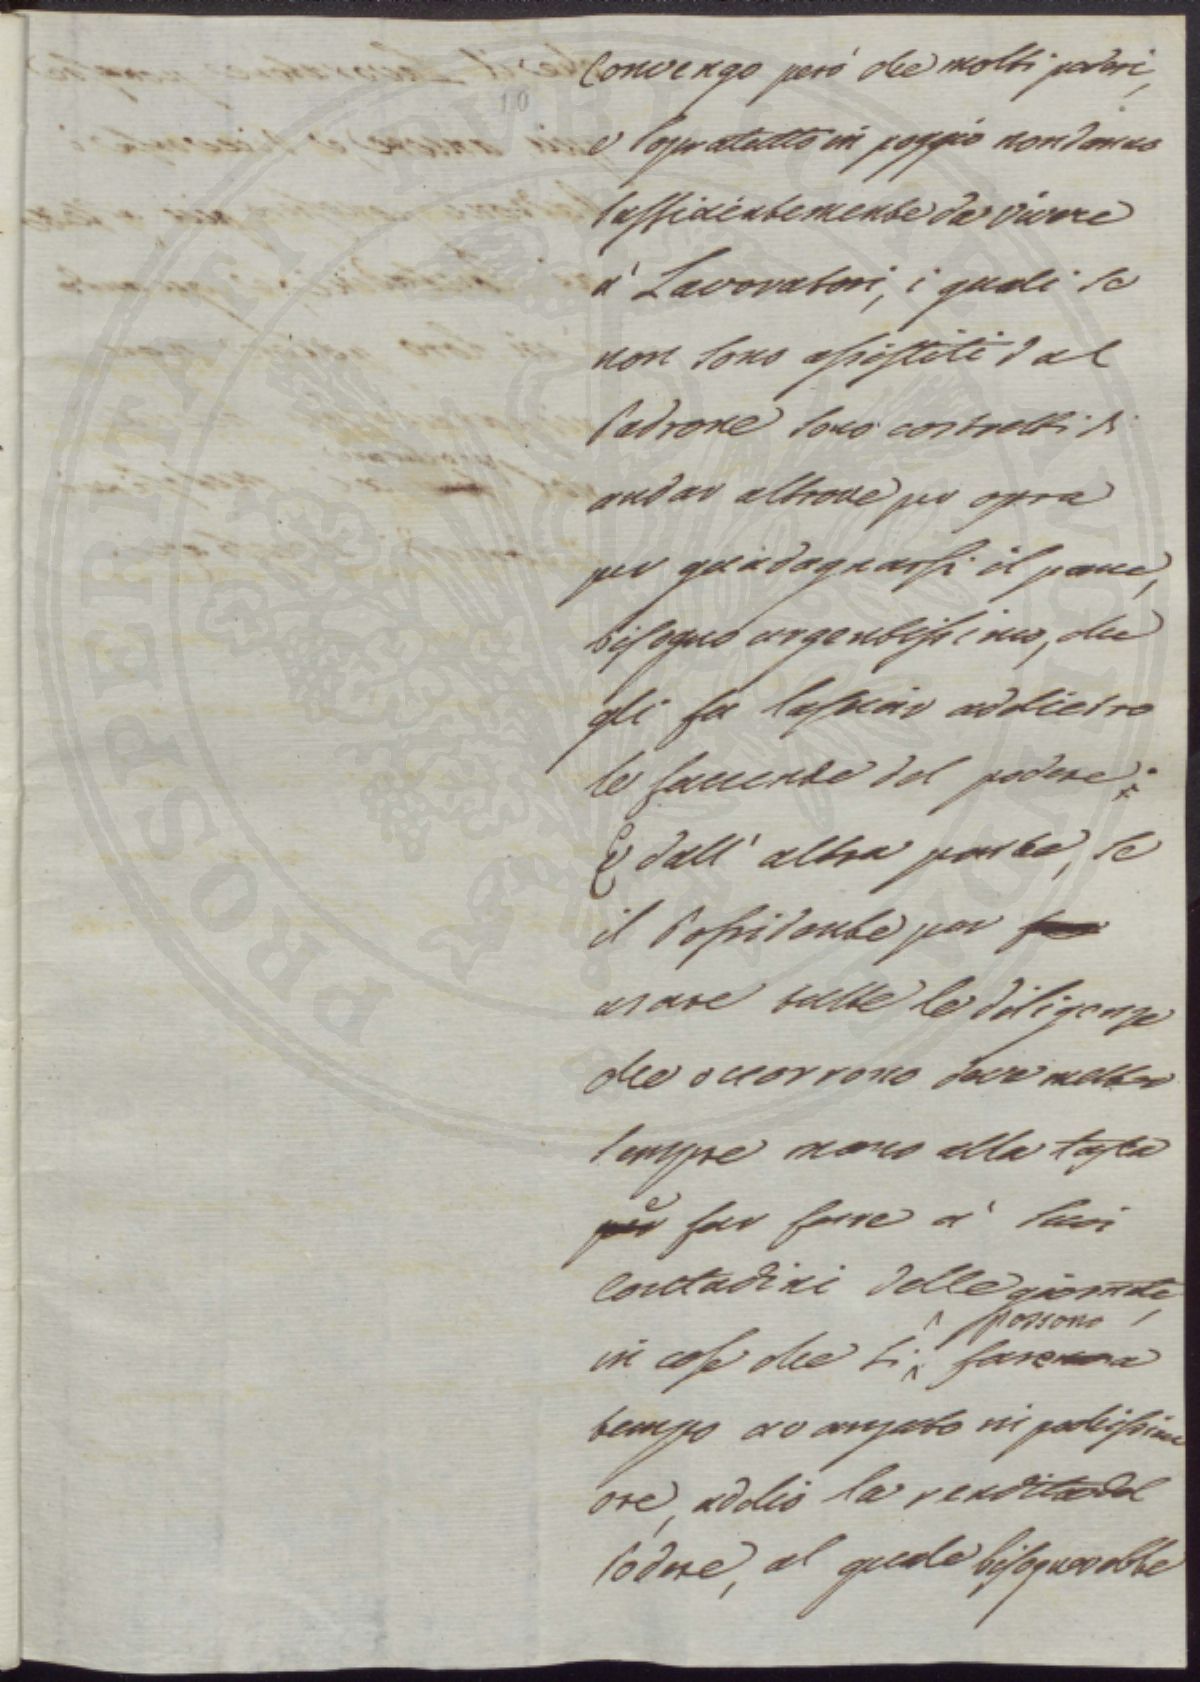 10
Convengo però che molti poderi,
e sopratutto in poggio non danno
sufficientemente da vivere
a' Lavoratori, i quali se
non sono assistiti dal
Padrone sono costretti di
andar altrove per opra
per guadagnarsi il pane,
bisogno urgentissimo, che
gli fa lasciar addietro
le faccende del podere.
E dall' altra parte, se
il Possidente per
usare tutte le diligenze
che occorrono deve metter
sempre mano alla tasca
e far fare a' suoi
Contadini delle giornate,
possono
in cose che si fare a
tempo avanzato in pochissime
ore, addio la rendita del
Podere, al quale bisognerebbe
PROSPERITATI PUBLICAE AUGENDAE